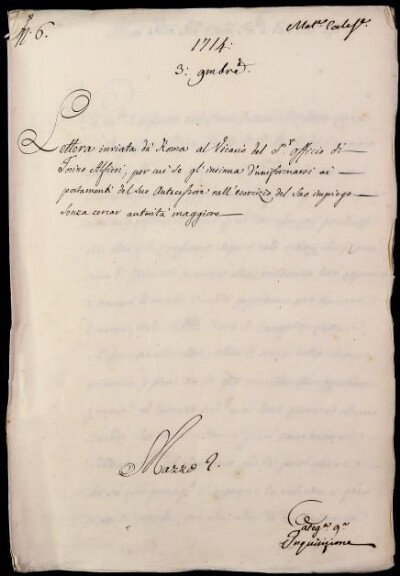 N.° 6.
Mat.e Eccles.e
1714:
3: 9mbre
Lettera inviata da Roma al Vicario del S.r Officio di
Torino Alfieri, per cui se gl'insinua d'uniformarsi ai
portamenti del suo Antecessore nell'esercizio del suo impiego
senza cercar autorità maggiore
Mazzo 2.
Categ.a 9.a
Inquisizione